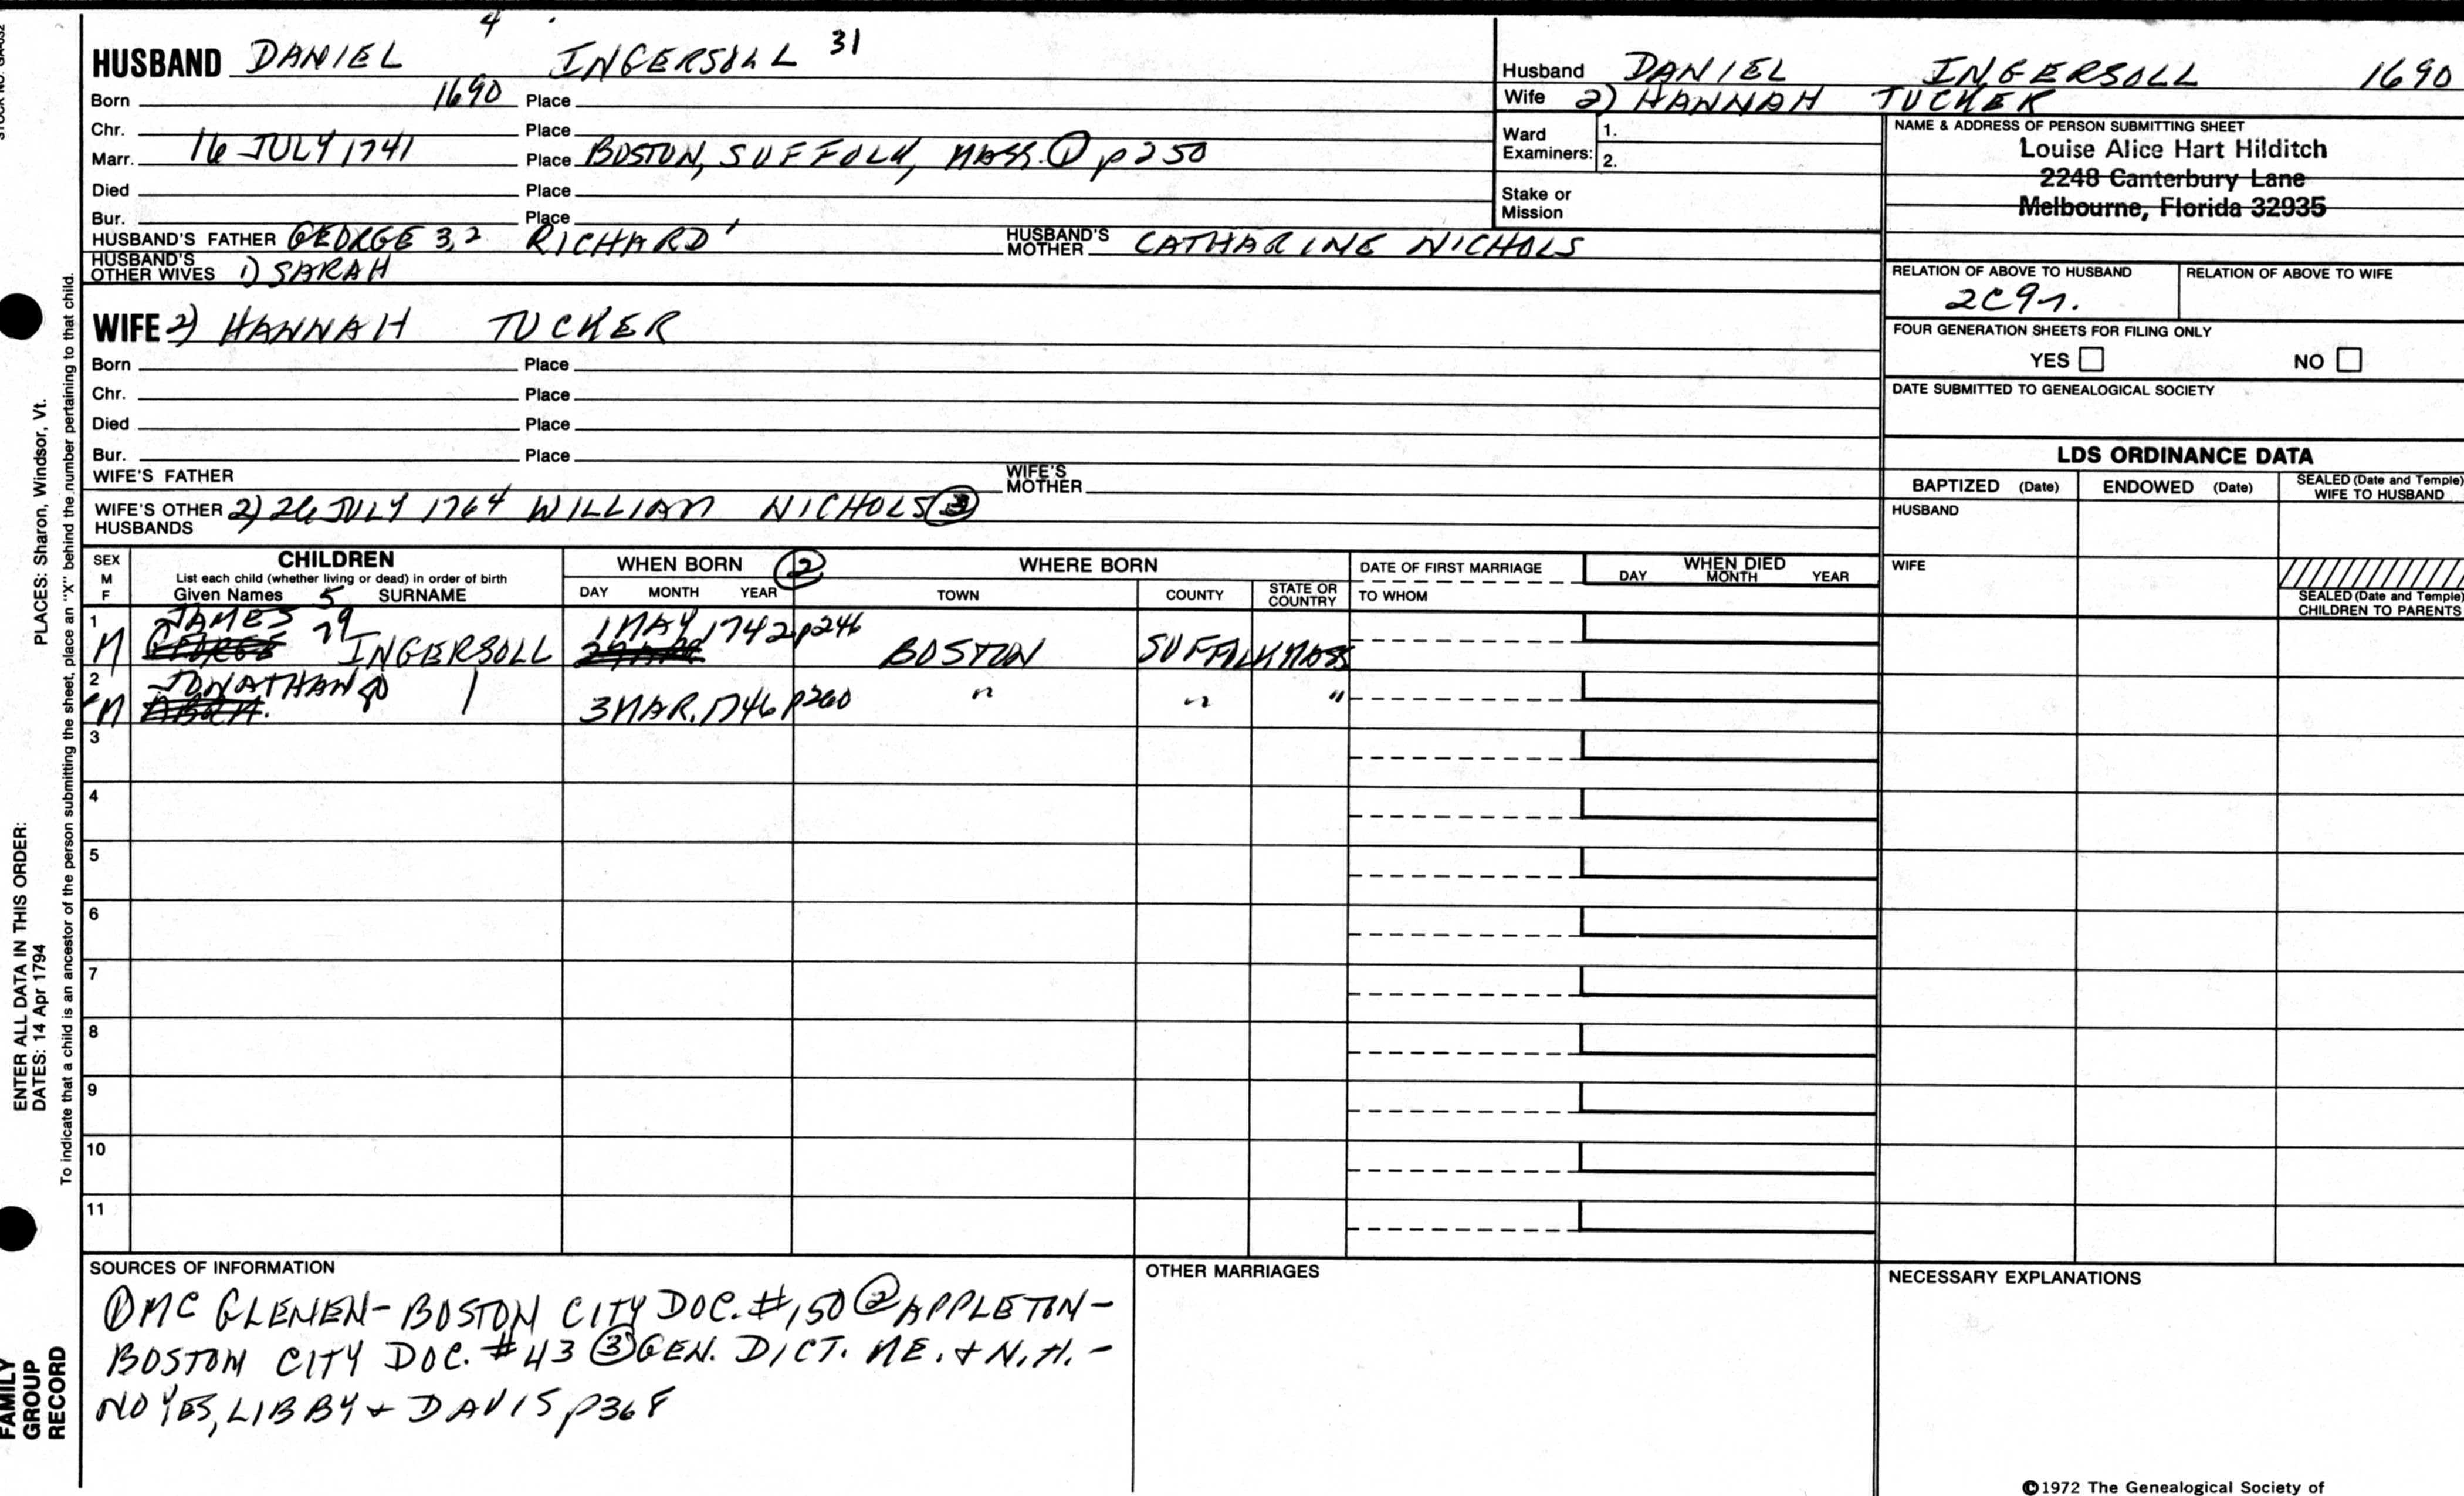 4
HUSBAND DANIEL INGERSOLL 31
Born 1690 Place
Chr. Place
Marr. 16 JULY 1741 Place BOSTON, SUFFOLK, MASS. ① p250
Died Place
Bur. Place
HUSBAND'S FATHER GEORGE 3,2 RICHARD 1 HUSBAND'S MOTHER CATHARINE NICHOLS
HUSBAND'S OTHER WIVES 1) SARAH
WIFE 2) HANNAH TUCKER
Born Place
Chr. Place
Died Place
Bur. Place
WIFE'S FATHER WIFE'S MOTHER
WIFE'S OTHER HUSBANDS 2) 26 JULY 1764 WILLIAM NICHOLS ③
Husband DANIEL INGERSOLL 1690
Wife 2) HANNAH TUCKER
Ward Examiners: 1.
2.
Stake or Mission
NAME & ADDRESS OF PERSON SUBMITTING SHEET
Louise Alice Hart Hilditch
2248 Canterbury Lane
Melbourne, Florida 32935
RELATION OF ABOVE TO HUSBAND RELATION OF ABOVE TO WIFE
2C9r.
FOUR GENERATION SHEETS FOR FILING ONLY
YES NO
DATE SUBMITTED TO GENEALOGICAL SOCIETY
LDS ORDINANCE DATA
BAPTIZED (Date) ENDOWED (Date) SEALED (Date and Temple) WIFE TO HUSBAND
HUSBAND
WIFE
SEALED (Date and Temple) CHILDREN TO PARENTS
SEX M F CHILDREN WHEN BORN ② WHERE BORN DATE OF FIRST MARRIAGE WHEN DIED
List each child (whether living or dead) in order of birth
Given Names 5 SURNAME DAY MONTH YEAR TOWN COUNTY STATE OR COUNTRY TO WHOM DAY MONTH YEAR
1 M JAMES 79 GEORGE INGERSOLL 1 MAY 1742 p246 BOSTON SUFFOLK MASS
2 M JONATHAN 80 3 MAR. 1746 p260 " " "
3
4
5
6
7
8
9
10
11
SOURCES OF INFORMATION
① MC GLENEN- BOSTON CITY DOC. #150 ② APPLETON-
BOSTON CITY DOC. #43 ③ GEN. DICT. ME. + N.H. -
NOYES, LIBBY + DAVIS p368
OTHER MARRIAGES
NECESSARY EXPLANATIONS
©1972 The Genealogical Society of
PLACES: Sharon, Windsor, Vt.
ENTER ALL DATA IN THIS ORDER:
DATES: 14 Apr 1794
To indicate that a child is an ancestor of the person submitting the sheet, place an "X" behind the number pertaining to that child.
FAMILY
GROUP
RECORD